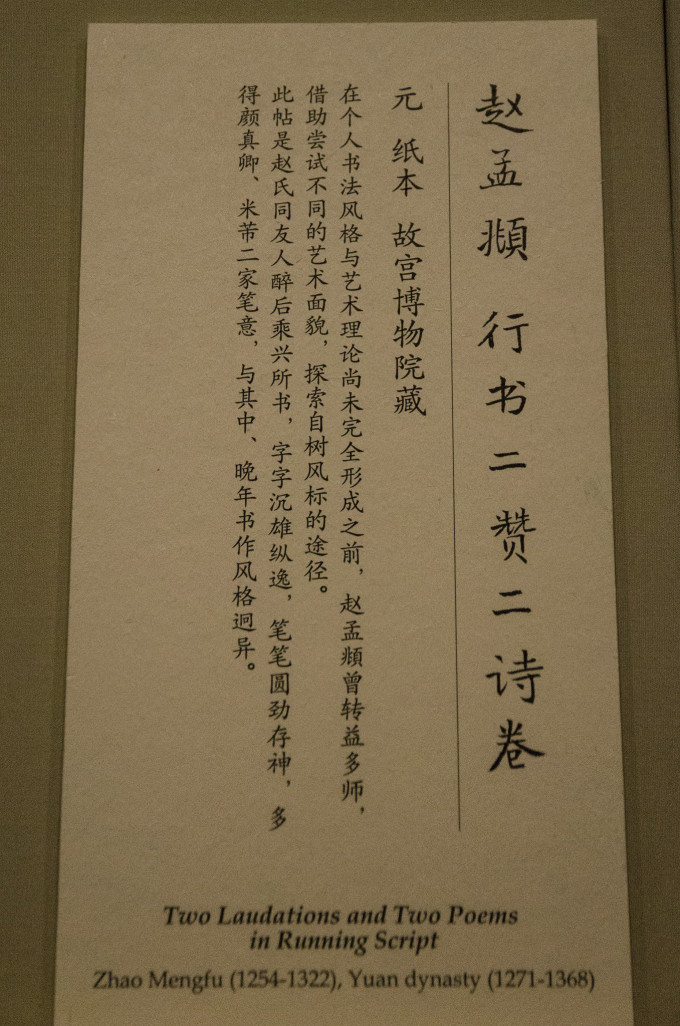 赵孟頫 行书二赞二诗卷
元 纸本 故宫博物院藏
在个人书法风格与艺术理论尚未完全形成之前，赵孟頫曾转益多师，
借助尝试不同的艺术面貌，探索自树风标的途径。
此帖是赵氏同友人醉后乘兴所书，字字沉雄纵逸，笔笔圆劲存神，多
得颜真卿、米芾二家笔意，与其中、晚年书作风格迥异。
Two Laudations and Two Poems
in Running Script
Zhao Mengfu (1254-1322), Yuan dynasty (1271-1368)